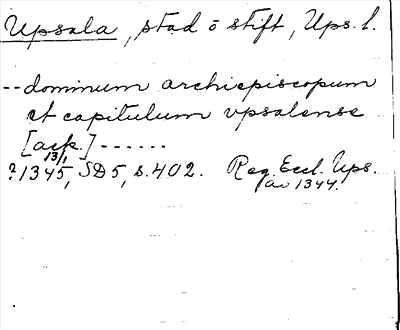 Upsala, stad ö stift, Ups. l.
-- dominum archiepiscopum
et capitulum vpsalense
[ack.] ------
13/1
?1345, SD5, s. 402. Reg. Eccl. Ups.
av 1344.